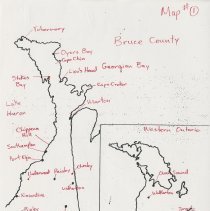 Map #1
Bruce County
Tobermory
Dyers Bay
Cape Chin
Lion's Head
Georgian Bay
Stokes Bay
Cape Croker
Wiarton
Lake Huron
Western Ontario
Chippewa Hill
Southampton
Port Elgin
Underwood
Paisley
Chesley
Owen Sound
Walkerton
Walkerton
Kincardine
Toronto